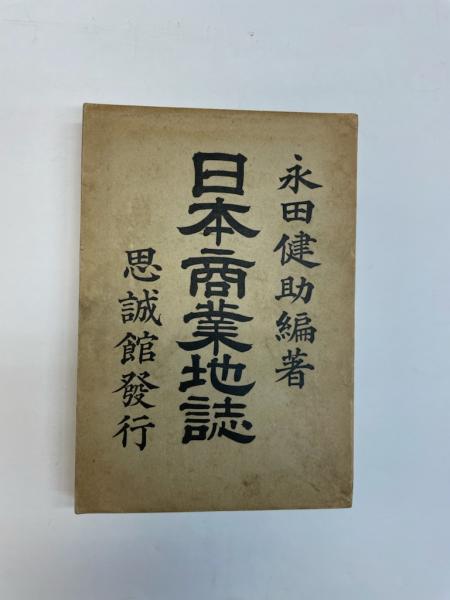 永田健助編著
日本商業地誌
思誠館發行